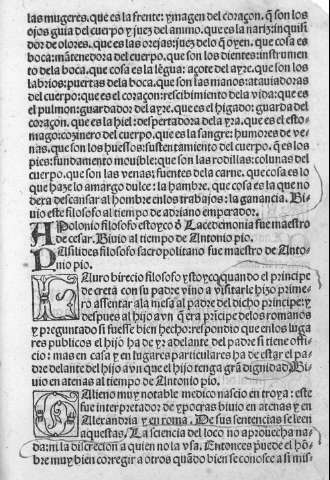 las mugeres. que es la frente: ymagen del coraçon. q̃ son los
ojos guia del cuerpo y juez del animo. que es la nariz: inquisi
dor de olores. que es las orejas: juez delo q̃ oyen. que cosa es
boca: mãtenedora del cuerpo. que son los dientes: instrumen
to dela boca. que cosa es la lẽgua: açote del ayre. que son los
labrios: puertas dela boca. que son las manos: atauiadoras
del cuerpo: que es el coraçon: rescibimiento dela vida: que es
el pulmon: guardador del ayre. que es el higado: guarda del
coraçon. que es la hiel: despertadora dela yra. que es el esto
mago: cozinero del cuerpo. que es la sangre: humores de ve
nas. que son los huessos: sustentamiento del cuerpo. q̃ es los
pies: fundamento mouible: que son las rodillas: colunas del
cuerpo. que son las venas: fuentes dela carne. que cosa es lo
que haze lo amargo dulce: la hambre. que cosa es la que no
dexa descansar al hombre enlos trabajos: la ganancia. Bi
uio este filosofo al tiempo de adriano emperador.
APolonio filosofo estoyco d̃ Lacedemonia fue maestro
de cesar. Biuio al tiempo de Antonio pio.
BAsilides filosofo sacropolitano fue maestro de Anto-
nio pio.
TAuro birecio filosofo y stoyco quando el principe
de creta con su padre vino a visitarle hizo prime
ro assentar ala mesa al padre del dicho principe: y
despues al hijo avn q̃ era prĩcipe delos romanos
y preguntado si fuesse bien hecho: respondio que enlos luga
res publicos el hijo ha de yr adelante del padre si tiene offi-
cio: mas en casa y en lugares particulares ha de estar el pa
dre delante del hijo avn que el hijo tenga grã dignidad Bi
uio en atenas al tiempo de Antonio pio.
GAlieno muy notable medico nascio en troya: este
fue interpretador de ypocras biuio en atenas y en
Alexandria y en roma. De sus sentencias se leen
aquestas. La sciencia del loco no aprouecha na-
da: ni la discrecion a quien no la vsa. Entonces puede el hõ-
bre muy bien corregir a otros quãdo bien se conosce a si mis-